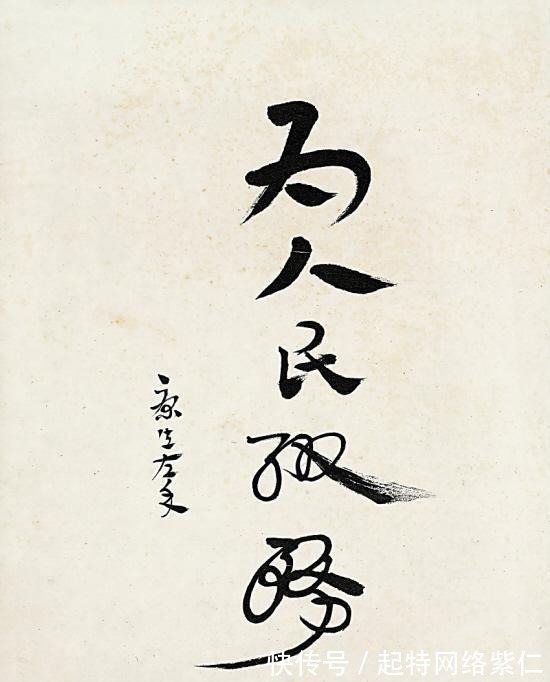 为人民服務
康生左手
快传号／起特网络紫仁